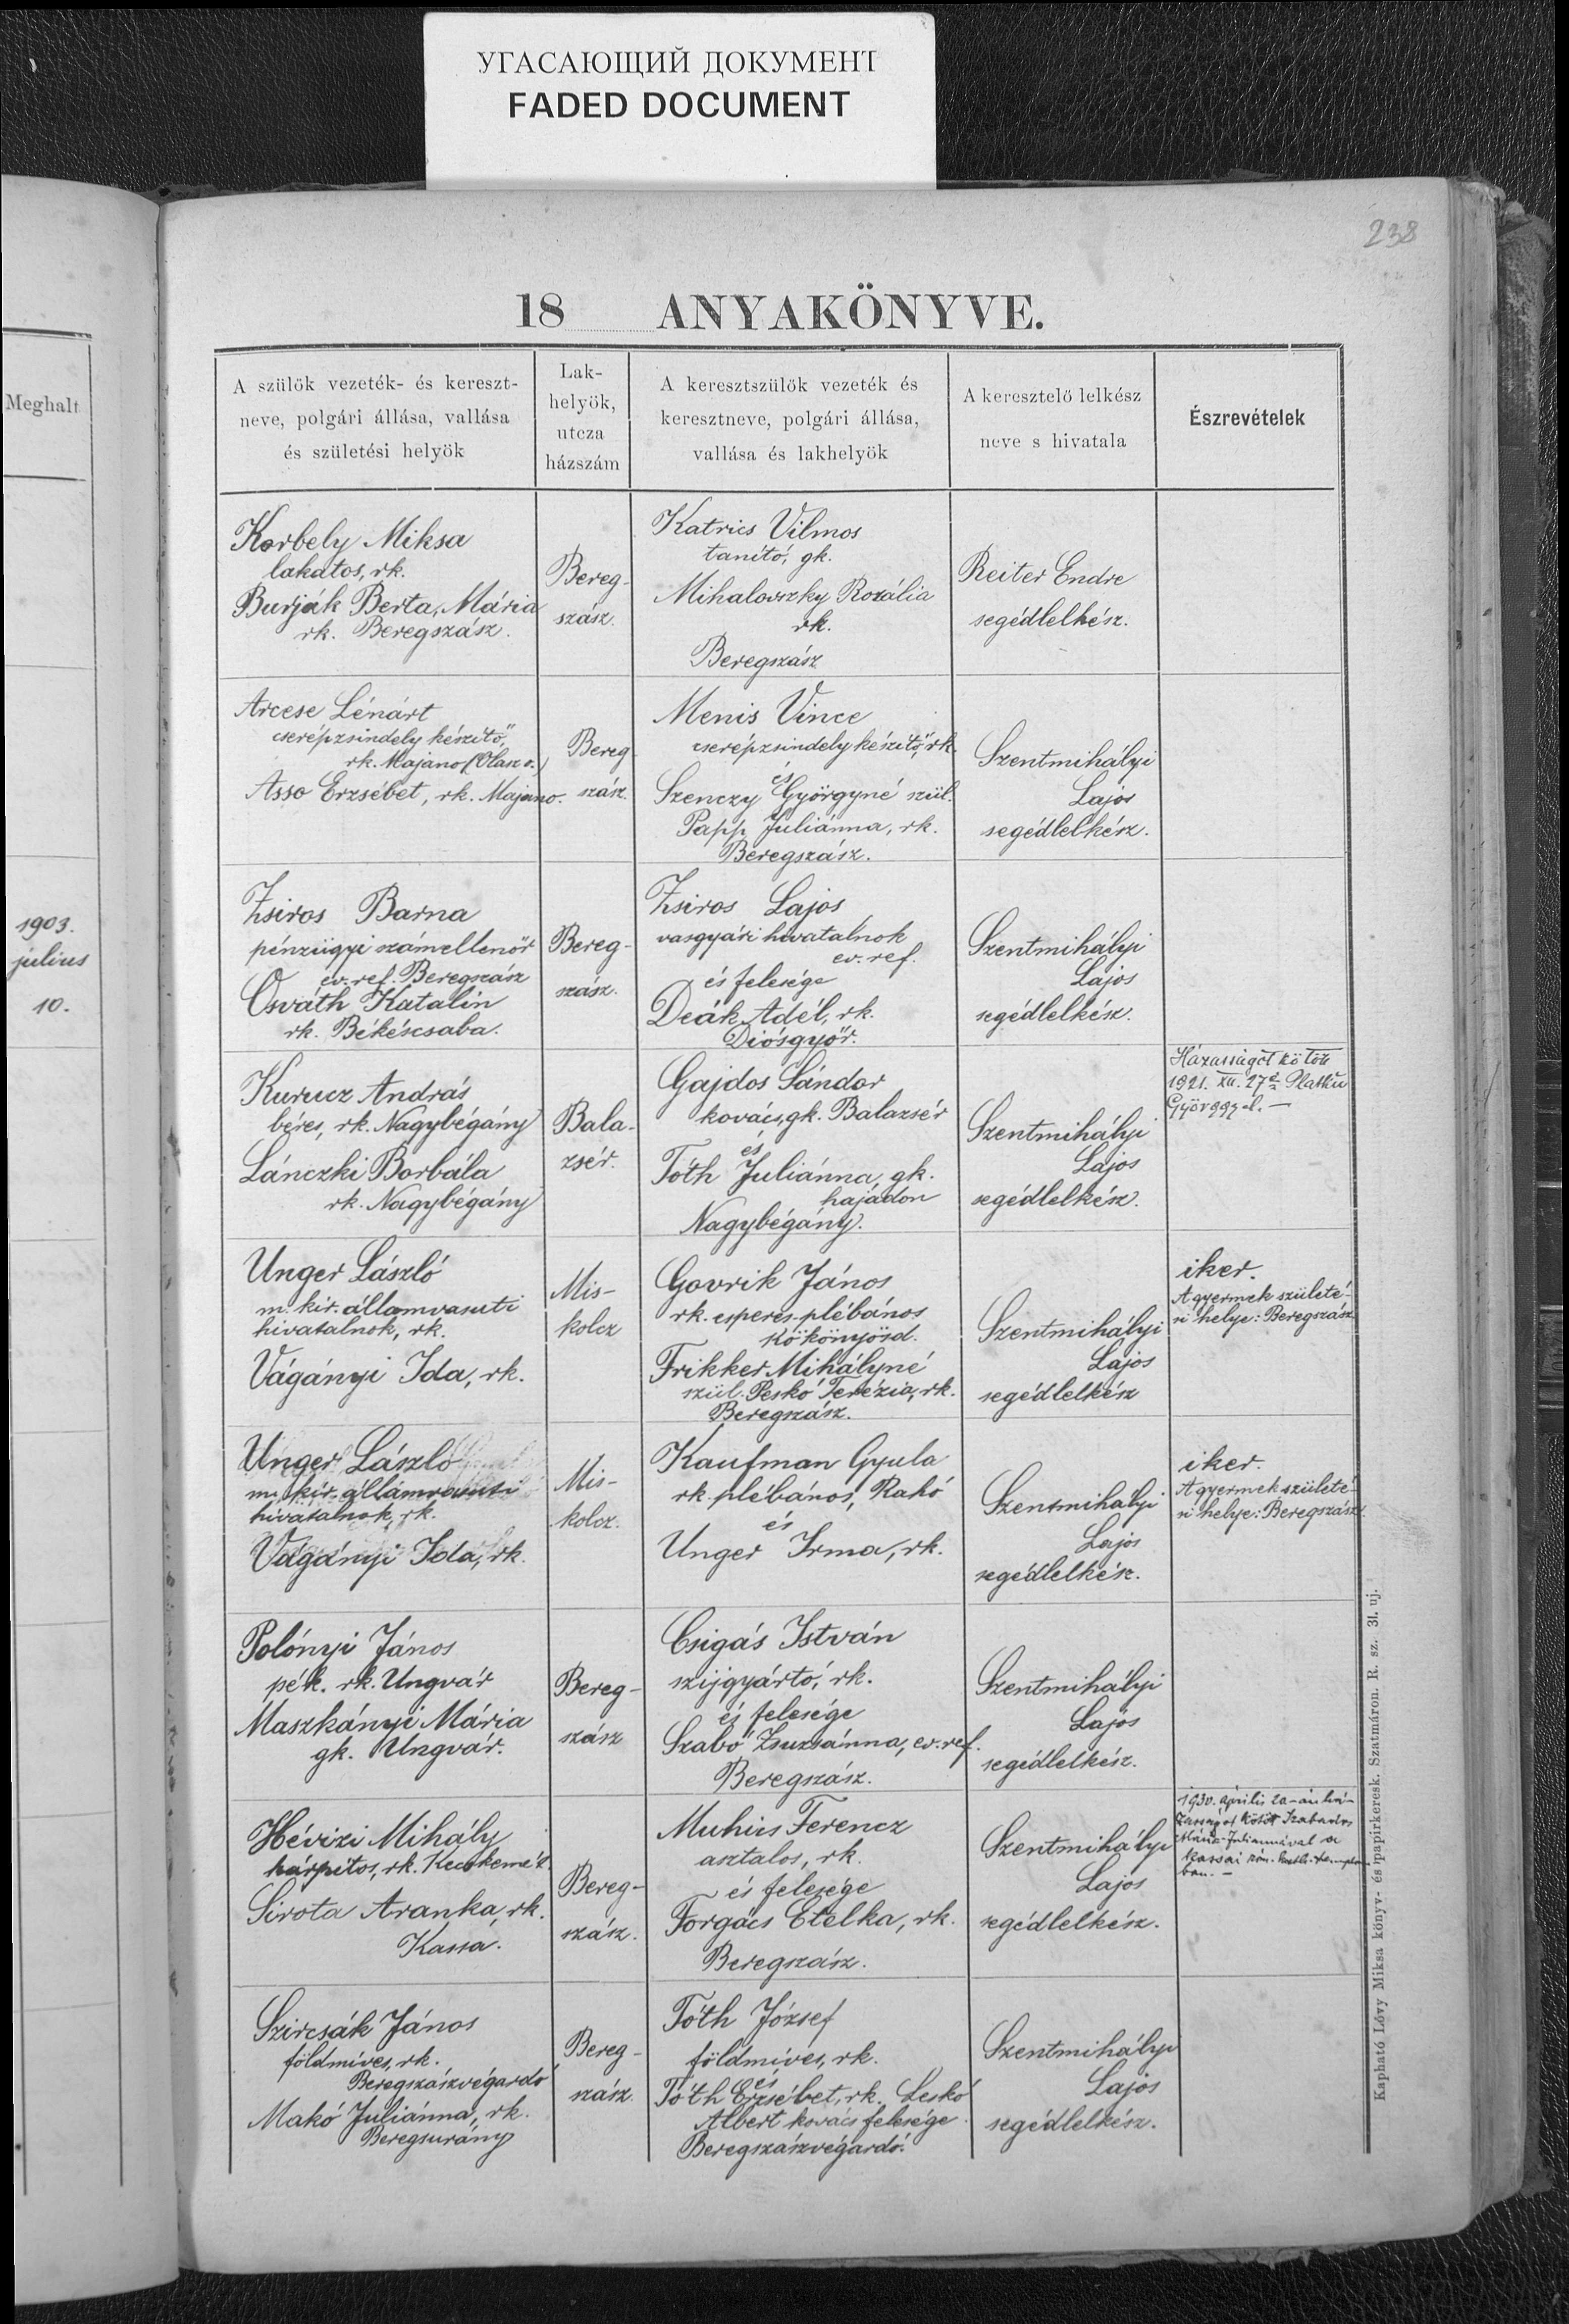 УГАСАЮЩИЙ ДОКУМЕНТ
FADED DOCUMENT
238
18 ANYAKÖNYVE.
Meghalt
1903.
julius
10.
A szülök vezeték- és kereszt-
neve, polgári állása, vallása
és születési helyök
Lak-
helyök,
utcza
házszám
A keresztszülök vezeték és
keresztneve, polgári állása,
vallása és lakhelyök
A keresztelő lelkész
neve s hivatala
Észrevételek
Korbely Miksa
lakatos, rk.
Burják Berta, Mária
rk. Beregszász.
Bereg-
szász.
Katrics Vilmos
tanító, gk.
Mihalovszky Rozália
rk.
Beregszász
Reiter Endre
segédlelkész.
Arcese Lénárt
cserépzsindely készitő,
rk. Majano (Olasz o.)
Asso Erzsébet, rk. Majano.
Bereg-
szász.
Menis Vince
cserépzsindely készitő, rk.
és
Szenczy Györgyné szül.
Papp Juliánna, rk.
Beregszász.
Szentmihályi
Lajos
segédlelkész.
Zsiros Barna
pénzügyi számellenőr
ev. ref. Beregszász
Osváth Katalin
rk. Békéscsaba.
Bereg-
szász.
Zsiros Lajos
vasgyári hivatalnok
ev. ref.
és felesége
Deák Adél, rk.
Diósgyőr.
Szentmihályi
Lajos
segédlelkész.
Kurucz András
béres, rk. Nagybégány
Lánczki Borbála
rk. Nagybégány
Bala-
zsér.
Gajdos Sándor
kovács, gk. Balazsér
és
Tóth Juliánna, gk.
hajádon
Nagybégány.
Szentmihályi
Lajos
segédlelkész.
Házasságot kötött
1921. XII. 27én
Györggyel. —
Unger László
m. kir. államvasuti
hivatalnok, rk.
Vágányi Ida, rk.
Mis-
kolcz
Govrik János
rk. esperes-plébános
Kökönyösd.
Frikker Mihályné
szül. Peskó Terézia, rk.
Beregszász.
Szentmihályi
Lajos
segédlelkész
iker.
A gyermek születé-
si helye: Beregszász
Unger László
m. kir. államvasuti
hivatalnok, rk.
Vágányi Ida, rk.
Mis-
kolcz.
Kaufman Gyula
rk. plébános, Rahó
és
Unger Irma, rk.
Szentmihályi
Lajos
segédlelkész.
iker.
A gyermek születé-
si helye: Beregszász.
Polónyi János
pék. rk. Ungvár
Maszkányi Mária
gk. Ungvár.
Bereg-
szász
Csigás István
szijgyártó, rk.
és felesége
Szabó Zsuzsánna, ev. ref.
Beregszász.
Szentmihályi
Lajos
segédlelkész.
Hévizi Mihály
kárpitos, rk. Kecskemét.
Sirota Aranka, rk.
Kassa.
Bereg-
szász.
Muhics Ferencz
asztalos, rk.
és felesége
Forgács Etelka, rk.
Beregszász.
Szentmihályi
Lajos
segédlelkész.
1930. április 20-án há-
zasságot kötött Szabados
Mária-Juliannával a
kassai róm. kath. templom-
ban. —
Szircsák János
földmives, rk.
Beregszászvégardó
Makó Juliánna, rk.
Beregsurány
Bereg-
szász.
Tóth József
földmives, rk.
és
Tóth Erzsébet, rk. Leskó
Albert kovács felesége
Beregszászvégardó.
Szentmihályi
Lajos
segédlelkész.
Kapható Lövy Miksa könyv- és papirkeresk. Szatmáron. R. sz. 31. uj.